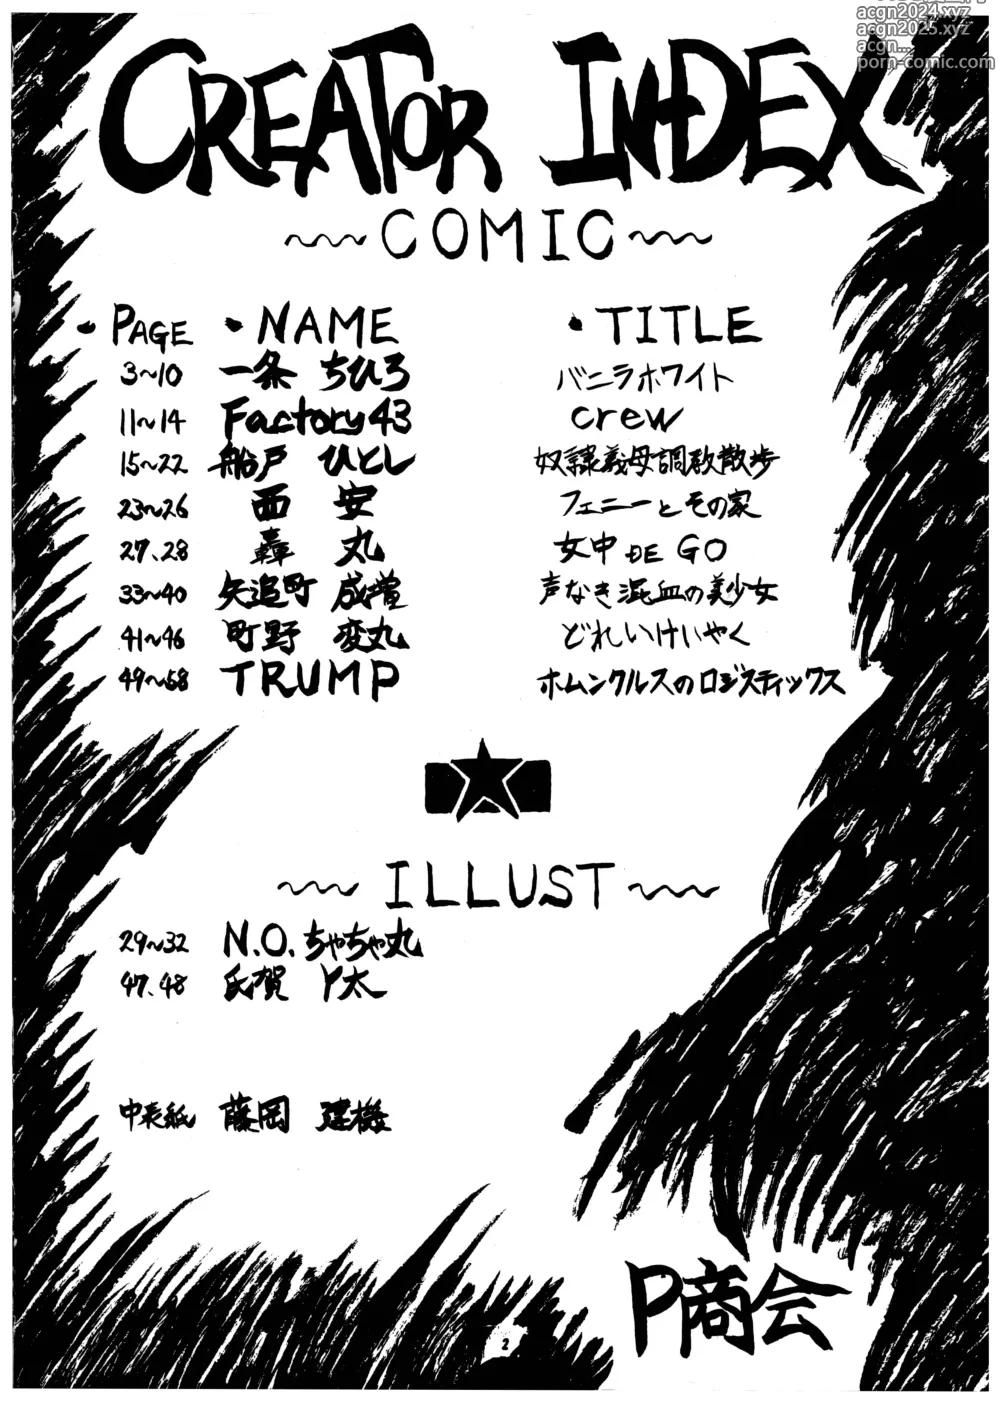 acgn2024.xyz
acgn2025.xyz
acgn...
porn-comic.com
CREATOR INDEX
~COMIC~
・PAGE ・NAME ・TITLE
3~10 一条 ちひろ バニラホワイト
11~14 Factory43 crew
15~22 船戸 ひとし 奴隷義母調教散歩
23~26 西安 フェニーとその家
27.28 轟丸 女中 DE GO
33~40 矢追町 成増 声なき混血の美少女
41~46 町野 変丸 どれいけいやく
49~58 TRUMP ホムンクルスのロジスティックス
~ILLUST~
29~32 N.O.ちゃちゃ丸
47.48 氏賀 Y太
中表紙 藤岡 建機
P商会
2